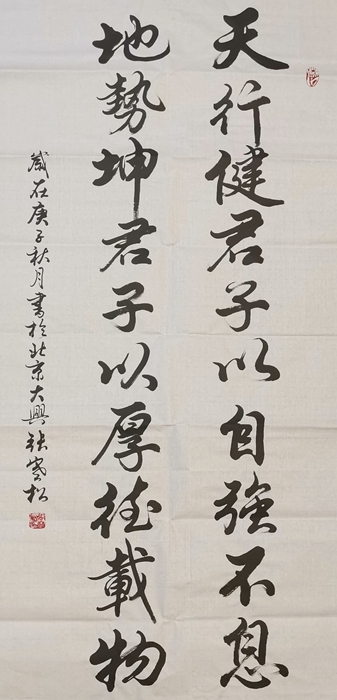 天行健君子以自強不息
地勢坤君子以厚德載物
歲在庚子秋月書於北京大興張寒松